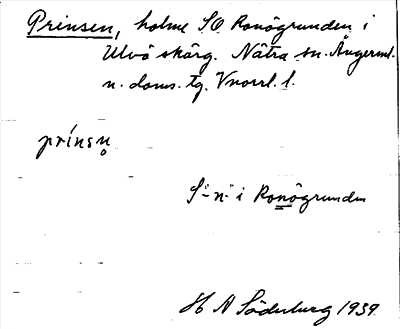 Prinsen, holme SO Ronögrunden i
Ulvö skärg. Nätra sn. Ångerml.
n. doms. tg. Vnorrl. l.
prínsṇ
S-n i Ronögrunden
H A Söderburg 1939.